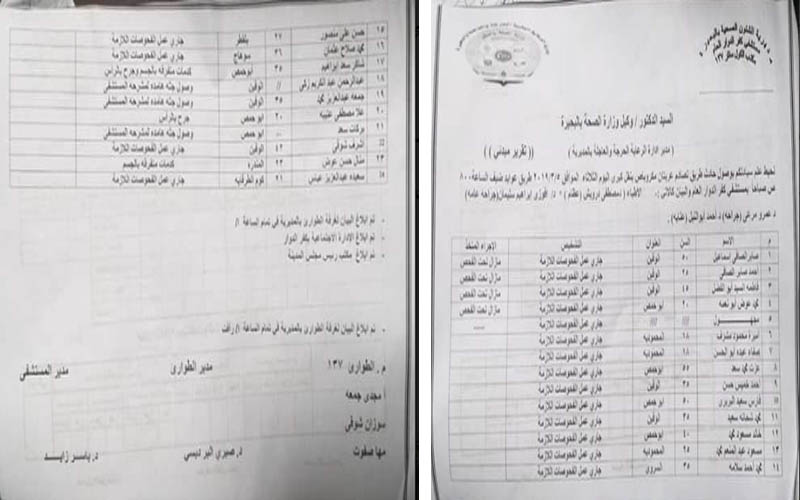 مديرية الشئون الصحية بالبحيرة
مستشفى كفر الدوار العام
مكتب الطوارئ ١٣٧
السيد الدكتور / وكيل وزارة الصحة بالبحيرة
( مدير ادارة الرعاية الحرجة والعاجلة بالمديرية ) (( تقرير مبدئي ))
نحيط علم سيادتكم بوصول حادث طريق تصادم عربتان مكروباص بنقل كبرى اليوم الثلاثاء الموافق ٢٠١٩/٣/٥ طريق عوايد ضيف الساعة ٨٠٠
ص صباحا بمستشفي كفر الدوار العام والبيان كالاتي :. الاطباء ( د/مصطفي درويش (عظام) د/ فوزى ابراهيم سليمان(جراحه عامه)
د عمرو مرعي (جراحه) د احمد ابوالنيل (عنايه)
م الاسم السن العنوان التشخيص الاجراء المتخذ
١ صابر الصافي اسماعيل ٥٠ ابوقين جاري عمل الفحوصات اللازمة مازال تحت الفحص
٢ احمد صابر الصافي ٢٥ ابوقين جاري عمل الفحوصات اللازمة مازال تحت الفحص
٣ فاطمه السيد ابو الفضل ٤٥ ابوقين جاري عمل الفحوصات اللازمة مازال تحت الفحص
٤ محمد عوض ابو نعمه ٢٠ ابوحمص جاري عمل الفحوصات اللازمة مازال تحت الفحص
٥ مجهول /// /// جاري عمل الفحوصات اللازمة ----
٦ اميرة محمود مشرف ١٨ المحموديه جاري عمل الفحوصات اللازمة
٧ صفاء عبده ابو الحسن ١٨ المحموديه جاري عمل الفحوصات اللازمة
٨ عزت محمد سعد ٥٥ ابوحمص جاري عمل الفحوصات اللازمة
٩ احمد خميس حسن ٣٥ ابوقين جاري عمل الفحوصات اللازمة
١٠ فارس سعيد البربرى ٥٠ ابوحمص جاري عمل الفحوصات اللازمة
١١ محمد شحاته سعيد ٣٥ ابوقين جاري عمل الفحوصات اللازمة
١٢ خالد مسعود محمد ٤٠ ابوحمص جاري عمل الفحوصات اللازمة
١٣ مسعود عبد المنعم محمد ٢٥ المحموديه جاري عمل الفحوصات اللازمة
١٤ محمد احمد سلامه ٣٥ السروي جاري عمل الفحوصات اللازمة
١٥ حسن علي منصور ٢٧ بلقطر جاري عمل الفحوصات اللازمة
١٦ محمد صلاح عثمان ٣٦ سوهاج جاري عمل الفحوصات اللازمة
١٧ شاكر سعد ابراهيم ٣٥ ابوحمص كدمات متفرقه بالجسم وجرح بالراس
١٨ عبدالرحمن عبد الكريم زكي // ابوقين وصول جثه هامده لمشرحه المستشفى
١٩ جمعه عبدالعزيز محمد ٣٥ ابوقين وصول جثه هامده لمشرحه المستشفى
٢٠ علا مصطفي عليبه ٢٠ ابوحمص جرح بالراس
٢١ بركات سعد -- ابوحمص وصول جثه هامده لمشرحه المستشفى
٢٢ اشرف شوقي ٤٢ ابوقين جاري عمل الفحوصات اللازمة
٢٣ منال حسن عوض ٢٣ المندره كدمات متفرقه بالجسم
سعيده عبدالعزيز عباس ٢١ كوم الطرفايه جاري عمل الفحوصات اللازمة
- تم ابلاغ البيان لغرفة الطوارئ بالمديرية في تمام الساعة //
- تم ابلاغ الادارة الاجتماعية بكفر الدوار
- تم ابلاغ مكتب رئيس مجلس المدينة
- تم ابلاغ البيان لغرفة الطوارئ بالمديرية في تمام الساعة // رافت
م . الطوارئ ١٣٧ مدير الطوارئ مدير المستشفى
ا مجدى جمعه
سوزان شوقي
مها صفوت د. صبري البرديسي د. ياسر زايد